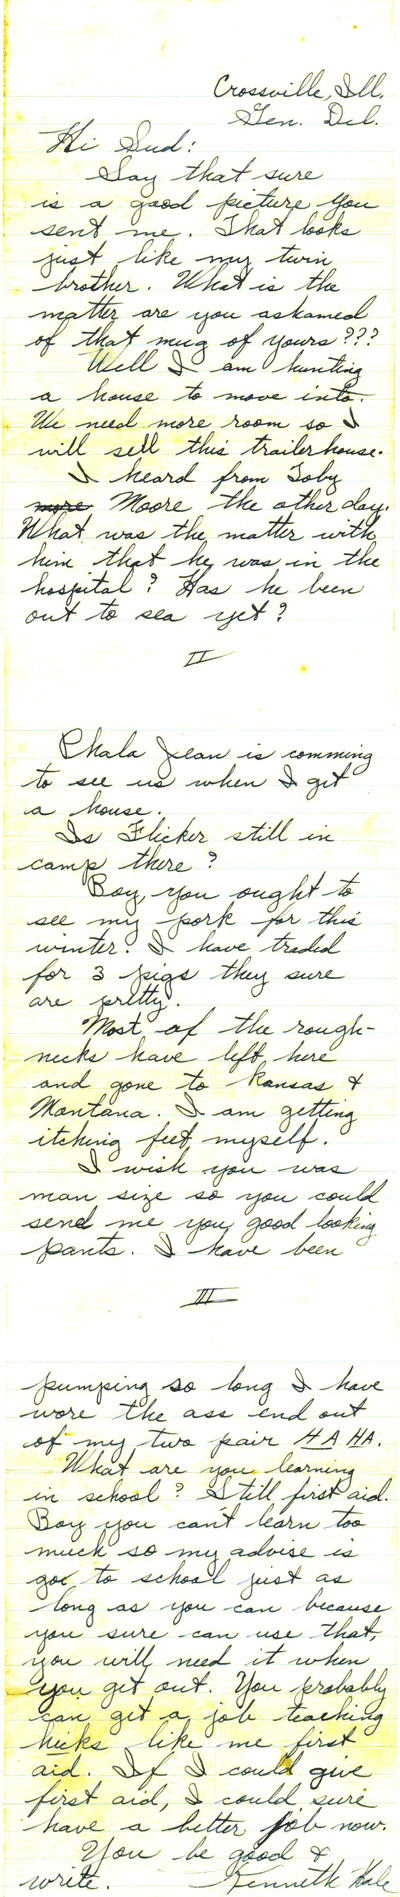 Crossville, Ill.
Gen. Del.
Hi Sud:
Say that sure
is a good picture you
sent me. That looks
just like my twin
brother. What is the
matter are you askamed
of that mug of yours???
Well I am hunting
a house to move into.
We need more room so I
will sell this trailerhouse.
I heard from Toby
more Moore the other day.
What was the matter with
him that he was in the
hospital? Has he been
out to sea yet?
II
Phala Jean is comming
to see us when I get
a house.
Is Flicker still in
camp there?
Boy you ought to
see my pork for this
winter. I have traded
for 3 pigs they sure
are pretty.
Most of the rough-
necks have left here
and gone to Kansas &
Montana. I am getting
itching feet myself.
I wish you was
man size so you could
send me you good looking
pants. I have been
III
pumping so long I have
wore the ass end out
of my two pair HA HA.
What are you learning
in school? Still first aid.
Boy you can't learn too
much so my advise is
go to school just as
long as you can because
you sure can use that,
you will need it when
you get out. You probably
can get a job teaching
hicks like me first
aid. If I could give
first aid, I could sure
have a better job now.
You be good &
write. Kenneth Hale